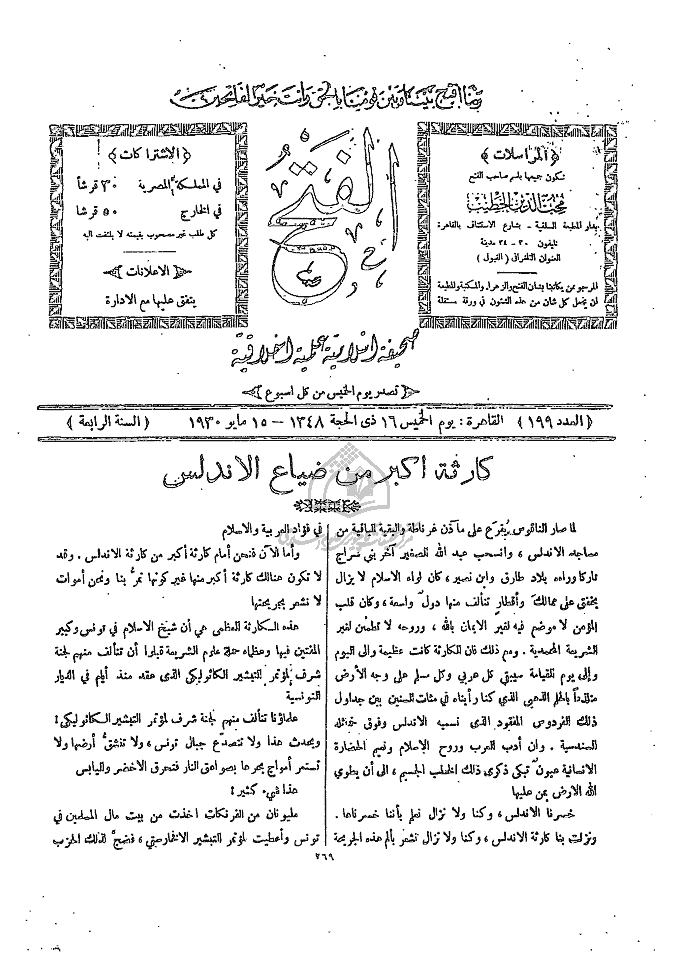 ربنا افتح بيننا وبين قومنا بالحق وانت خير الفاتحين
المراسلات
تكون جميعها باسم صاحب الفتح
محب الدين الخطيب
بدار المطبعة السلفية - بشارع الاستئناف بالقاهرة
تليفون ٣٠ - ٢٤ مدينة
العنوان التلغرافي (الفبول)
المرجو من يكاتبنا بشأن الفتح والزهراء والمكتبة والمطبعة
ان يفصل كل شأن من هذه الشئون في ورقة مستقلة
الفتح
الاشتراكات
في المملكة المصرية ٣٠ قرشاً
في الخارج ٥٠ قرشا
كل طلب غير مصحوب بقيمته لا يلتفت اليه
الاعلانات
يتفق عليها مع الادارة
صحيفة اسلامية علمية اخلاقية
تصدر يوم الخميس من كل اسبوع
(العدد ١٩٩) القاهرة: يوم الخميس ١٦ ذي الحجة ١٣٤٨ - ١٥ مايو ١٩٣٠ (السنة الرابعة)
كارثة اكبر من ضياع الاندلس
لما صار الناقوس يُقرَع على مآذن غرناطة والبقية الباقية من
مساجد الاندلس، وانسحب عبد الله الصغير آخر بني سراج
تاركا وراءه بلاد طارق وابن نصير، كان لواء الاسلام لا يزال
يخفق على ممالك وأقطار تتألف منها دول واسعة، وكان قلب
المؤمن لا موضع فيه لغير الايمان بالله، وروحه لا تطمئن لغير
الشريعة المحمدية. ومع ذلك فان الكارثة كانت عظيمة والى اليوم
وإلى يوم القيامة سيبقى كل عربي وكل مسلم على وجه الأرض
متلذذاً بالحلم الذهبي الذي كنا رأيناه في مئات السنين بين جداول
ذلك الفردوس المفقود الذي نسميه الاندلس وفوق
السندسية. وان أدب العرب وروح الإسلام ونعيم الحضارة
الانسانية عيون تبكي ذكرى ذلك الخطب الجسيم، الى أن يطوي
الله الارض بمن عليها
خسرنا الاندلس، وكنا ولا نزال نعلم بأننا خسرناها.
ونزلت بنا كارثة الاندلس، وكنا ولا نزال نشعر بألم هذه الجريحة
في فؤاد العربية والاسلام
وأما الآن فنحن أمام كارثة أكبر من كارثة الاندلس. وقد
لا تكون هنالك كارثة أكبر منها غير كونها تمرُّ بنا ونحن أموات
لا نشعر بجريحتها
هذه الكارثة العظمى هي أن شيخ الاسلام في تونس وكبير
المفتين فيها وعظماء حملة علوم الشريعة قبلوا أن تتألف منهم لجنة
شرف لمؤتمر التبشير الكاثوليكي الذي عقد منذ أيام في الديار
التونسية
علماؤنا تتألف منهم لجنة شرف لمؤتمر التبشير الكاثوليكي!
ويحدث هذا ولا تتصدّع جبال تونس، ولا تنشقُّ أرضها ولا
تستعر أمواج بحرها بصواعق النار فتحرق الاخضر واليابس
هذا شيء كثير!
مليونان من الفرنكات اخذت من بيت مال المسلمين في
تونس وأعطيت لمؤتمر التبشير الافخارستي، فضجَّ لذلك الحزب
٢٦٩